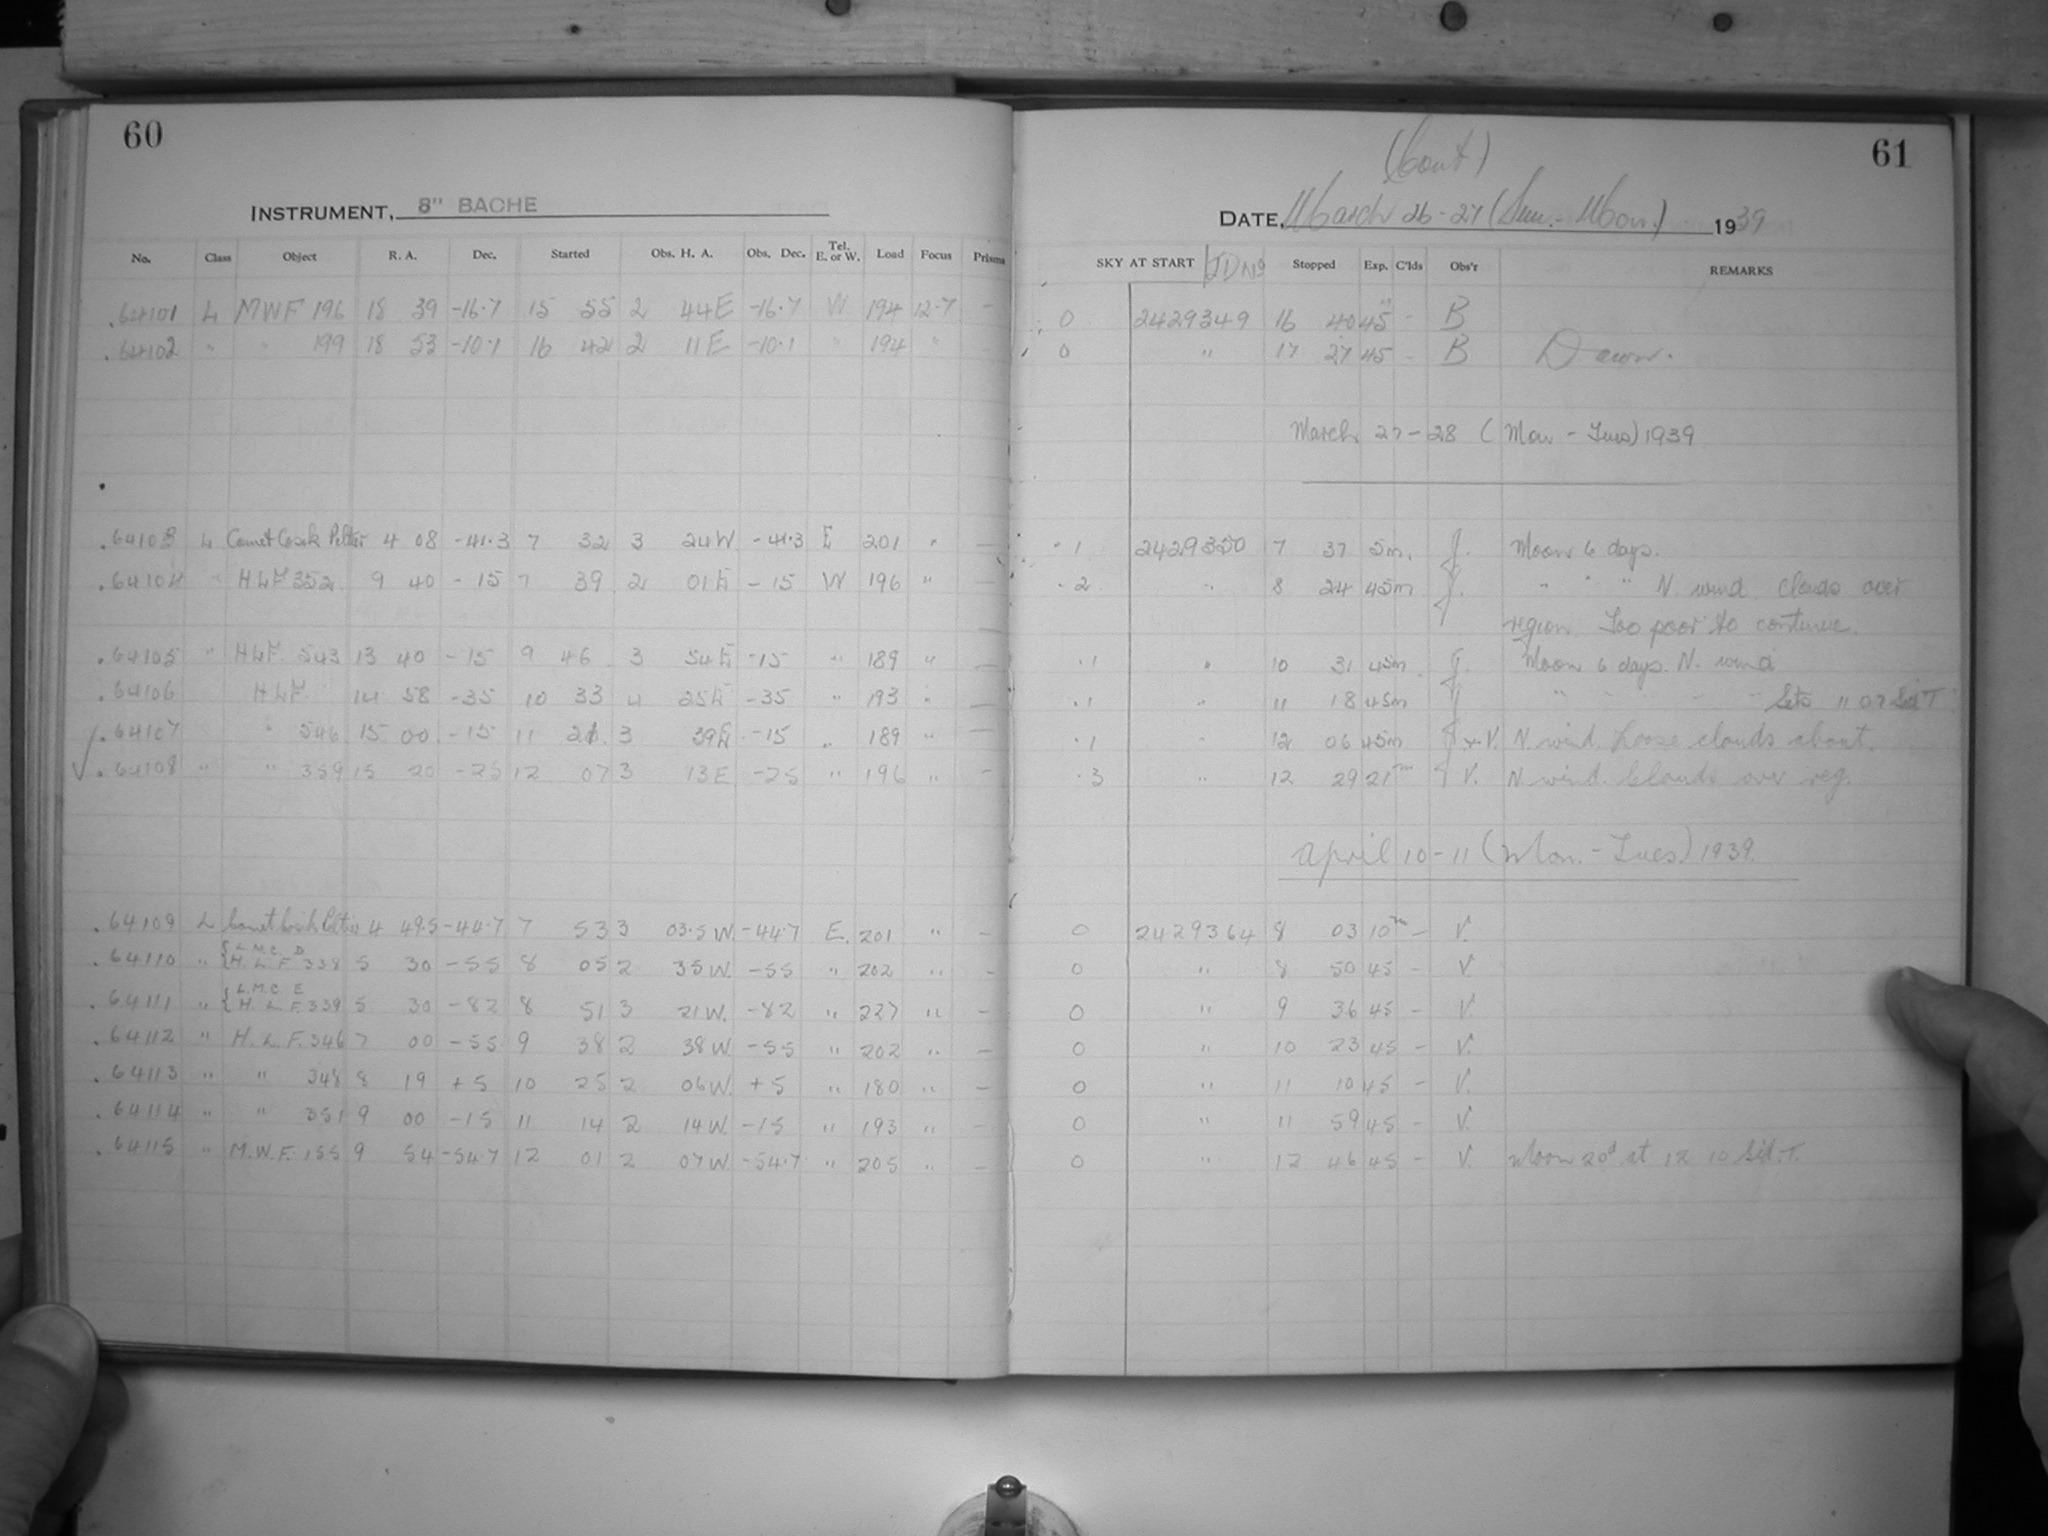 60
INSTRUMENT, 8" BACHE
No. Class Object R. A. Dec. Started Obs. H. A. Obs. Dec. Tel. E. or W. Load Focus Prisms
.64101 L MWF 196 18 39 -16.7 15 55 2 44E -16.7 W 194 12.7 -
.64102 " " 199 18 53 -10.1 16 42 2 11E -10.1 " 194 " -
.64103 L Comet Cosik Peltier 4 08 -41.3 7 32 3 24W -41.3 E 201 " -
.64104 " HLF 352 9 40 -15 7 39 2 01E -15 W 196 " -
.64105 " HLF. 543 13 40 -15 9 46 3 54E -15 " 189 " -
.64106 HLF. 14 58 -35 10 33 4 25E -35 " 193 " -
.64107 " 546 15 00 -15 11 21 3 39E -15 " 189 " -
.64108 " " 359 15 20 -25 12 07 3 13E -25 " 196 " -
.64109 L Comet Cosik Peltier 4 49.5 -44.7 7 53 3 03.5 W. -44.7 E. 201 " -
L.M.C. D
.64110 " H. L. F. 338 5 30 -55 8 05 2 35 W. -55 " 202 " -
L.M.C. E
.64111 " H. L. F. 339 5 30 -82 8 51 3 21 W. -82 " 227 " -
.64112 " H. L. F. 346 7 00 -55 9 38 2 38 W -55 " 202 " -
.64113 " " 348 8 19 +5 10 25 2 06 W. +5 " 180 " -
.64114 " " 351 9 00 -15 11 14 2 14 W. -15 " 193 " -
.64115 " M.W.F. 155 9 54 -54.7 12 01 2 07 W. -54.7 " 205 " -
61
(Cont)
DATE, March 26-27 (Sun.-Mon.) 1939
SKY AT START JD No Stopped Exp. C'lds Obs'r REMARKS
0 2429349 16 40 45m - B
0 " 17 27 45 - B Dawn.
March 27-28 (Mon - Tues) 1939
.1 2429350 7 37 5m. J. Moon 6 days.
.2 " 8 24 45m J. " " " N. wind clouds over
region. Too poor to continue.
.1 " 10 31 45m J. Moon 6 days. N. wind
.1 " 11 18 45m J " - - - " Sets 11 07 Sid T
.1 " 12 06 45m J + V. N. wind. Loose clouds about.
.3 " 12 29 21m V. N. wind. Clouds over reg.
April 10-11 (Mon. - Tues) 1939.
0 2429364 8 03 10m - V.
0 " 8 50 45 - V.
0 " 9 36 45 - V.
0 " 10 23 45 - V.
0 " 11 10 45 - V.
0 " 11 59 45 - V.
0 " 12 46 45 - V. Moon 20d at 12 10 Sid. T.